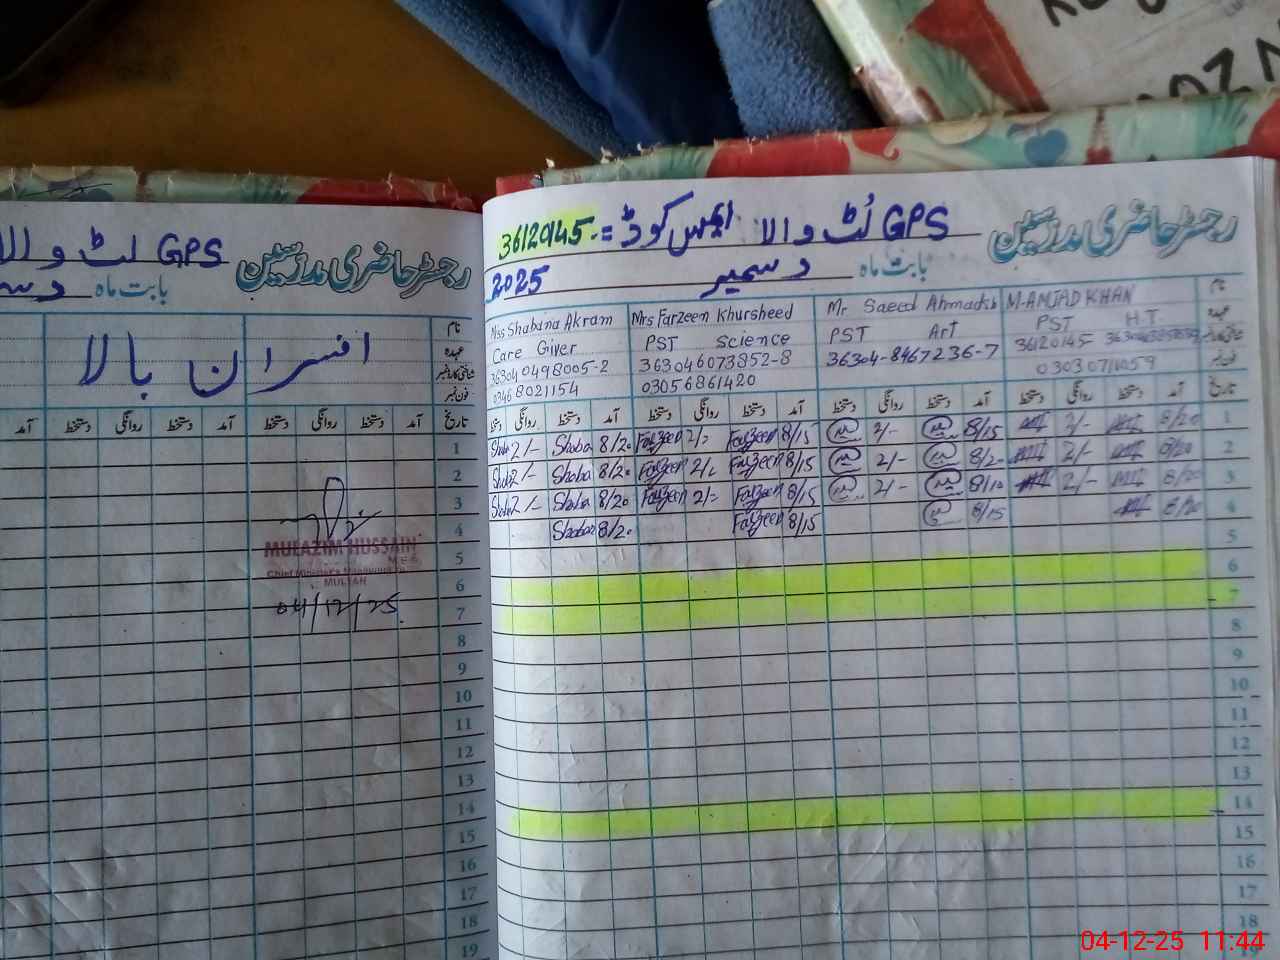 GPS لٹ والا
رجسٹر حاضری مدرسین
بابت ماہ
افسران بالا
نام
عہدہ
شناختی کارڈ نمبر
فون نمبر
آمد دستخط روانگی دستخط آمد دستخط روانگی دستخط آمد تاریخ
1
2
3
4
MULAZIM HUSSAIN
5
MULTAN
6
04/12/25
7
8
9
10
11
12
13
14
15
16
17
18
19
36120145 = ایمس کوڈ GPS لٹ والا
رجسٹر حاضری مدرسین
2025 دسمبر بابت ماہ
Miss Shabana Akram Mrs Farzeen Khursheed Mr Saeed Ahmad M-AMJAD KHAN نام
Care Giver PST Science PST Art PST H.T. عہدہ
363040498005-2 363046073852-8 36304-8467236-7 36120145
03468021154 03056861420 03030711059 فون نمبر
دستخط روانگی دستخط آمد دستخط روانگی دستخط آمد دستخط روانگی دستخط آمد دستخط روانگی دستخط آمد تاریخ
2/- Shaba 8/20 Farzeen 2/- Farzeen 8/15 2/- 8/15 2/- 8/20 1
2/- Shaba 8/20 Farzeen 2/- Farzeen 8/15 2/- 8/20 2/- 8/20 2
2/- Shaba 8/20 Farzeen 2/- Farzeen 8/15 2/- 8/10 2/- 8/20 3
Shaba 8/20 Farzeen 8/15 8/15 8/20 4
5
6
7
8
9
10
11
12
13
14
15
16
17
18
04-12-25 11:44